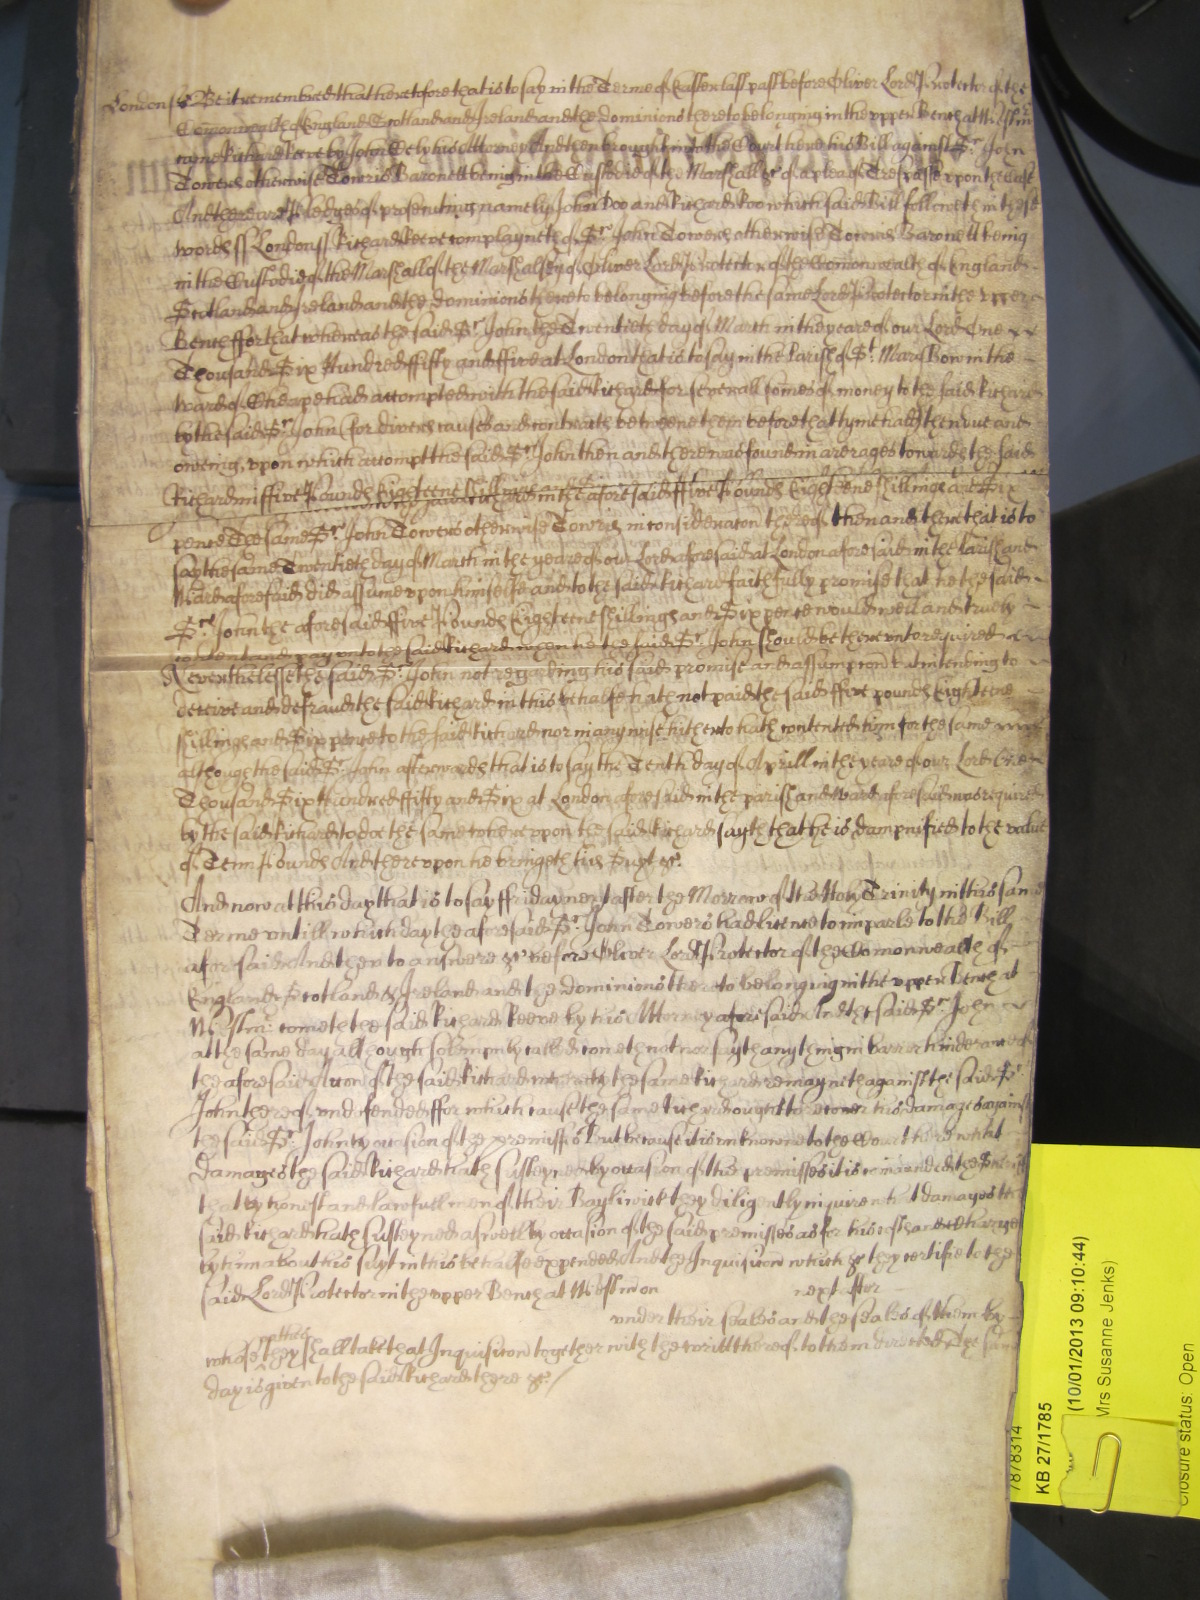 London ss Be it remembred that heretofore that is to say in the Terme of Easter last past before Oliver Lord Protector of the
Comonwealth of England Scotland and Ireland and the dominions thereto belonging in the upper Bench at Westm̃
came Richard Keeve by John Dely his Attorney And then brought into the Court here his Bill against Sr. John
Towers otherwise Towris Baronett being in the Custodie of the Marshall &c of a plea of Trespasse upon the case
And there are Pledges of prosecuting namely John Doo and Richard Roo which said Bill followeth in these
words ss London ss Richard Keeve complayneth of Sr. John Towers otherwise Towris Baronett being
in the Custodie of the Marshall of the Marshalsey of Oliver Lord Protector of the Comonwealth of England
Scotland and Ireland and the dominions thereto belonging before the same Lord Protector in the upper
Bench ffor that whereas the said Sr. John the Twentieth day of March in the yeare of our Lord One
Thousand Six Hundred ffifty and ffive at London that is to say in the Parish of St. Mary Bow in the
ward of Cheape had accompted with the said Richard for severall somes of money to the said Richard
by the said Sr. John (for divers causes and contracts betweene them before that tyme had) then due and
oweing, upon which accompt the said Sr. John then and there was found in arerages towards the said
Richard in ffive Pounds Eighteene Shillings in the aforesaid ffive Pounds Eighteene Shillings and Six
pence The same Sr. John Towers otherwise Towris in consideracon thereof then and there that is to
say the same Twentieth day of March in the yeare of our Lord aforesaid at London aforesaid in the Parish and
Ward aforesaid did assume upon himselfe and to the said Richard faithfully promise that he the said
Sr. John the aforesaid ffive Pounds Eighteene Shillings and Six pence would well and truely
content and pay unto the said Richard when he the said Sr. John should be thereunto required
Neverthelesse the said Sr. John not regarding his said promise and assumpcon but intending to
deceive and defraud the said Richard in this behalfe hath not paid the said ffive pounds Eighteene
Shillings and Six pence to the said Richard nor in any wise hitherto hath contented him for the same
although the said Sr. John afterwards that is to say the Tenth day of Aprill in the yeare of our Lord One
Thousand Six Hundred ffifty and Six at London aforesaid in the parish and ward aforesaid was required
by the said Richard to doe the same whereupon the said Richard sayth that he is dampnified to the value
of Tenn Pounds And thereupon he bringeth his Suyt &c.
And now at this day that is to say ffriday next after the Morrow of the Holy Trinity in this same
Terme untill which day the aforesaid Sr. John Towers had licence to imparle to the Bill
aforesaid And then to answere &c before Oliver Lord Protector of the Comonwealth of
England Scotland & Ireland and the dominions thereto belonging in the upper Bench at
Westm̃: cometh the said Richard Keeve by his Attorney aforesaid And the said Sr. John
at the same day although solempnly called cometh not nor sayth anything in barr or hinderance of
the aforesaid Accon of the said Richard the same Richard remayneth against the said Sr.
John thereof undefended ffor which cause the same Richard ought to recover his damages against
the said Sr. John by occasion of the premisses But because it is unknowne to the Court here what
damages the said Richard hath susteyned by occasion of the premisses it is comanded the Sheriffs
that by honest and lawfull men of their Bayliwick they diligently inquire what damages the
said Richard hath susteyned aswell by occasion of the said premisses as for his costs and charges
by him about his suyt in this behalfe expended And the Inquisicon which &c they certifie to the
said Lord Protector in the upper Bench at Westm̃ on next after
under their seales and the seales of them by
whose othes they shall take that Inquisicon together with the writt thereof to them directed The same
day is given to the said Richard there &c.
7878314
KB 27/1785
(10/01/2013 09:10:44)
Mrs Susanne Jenks)
Closure status: Open